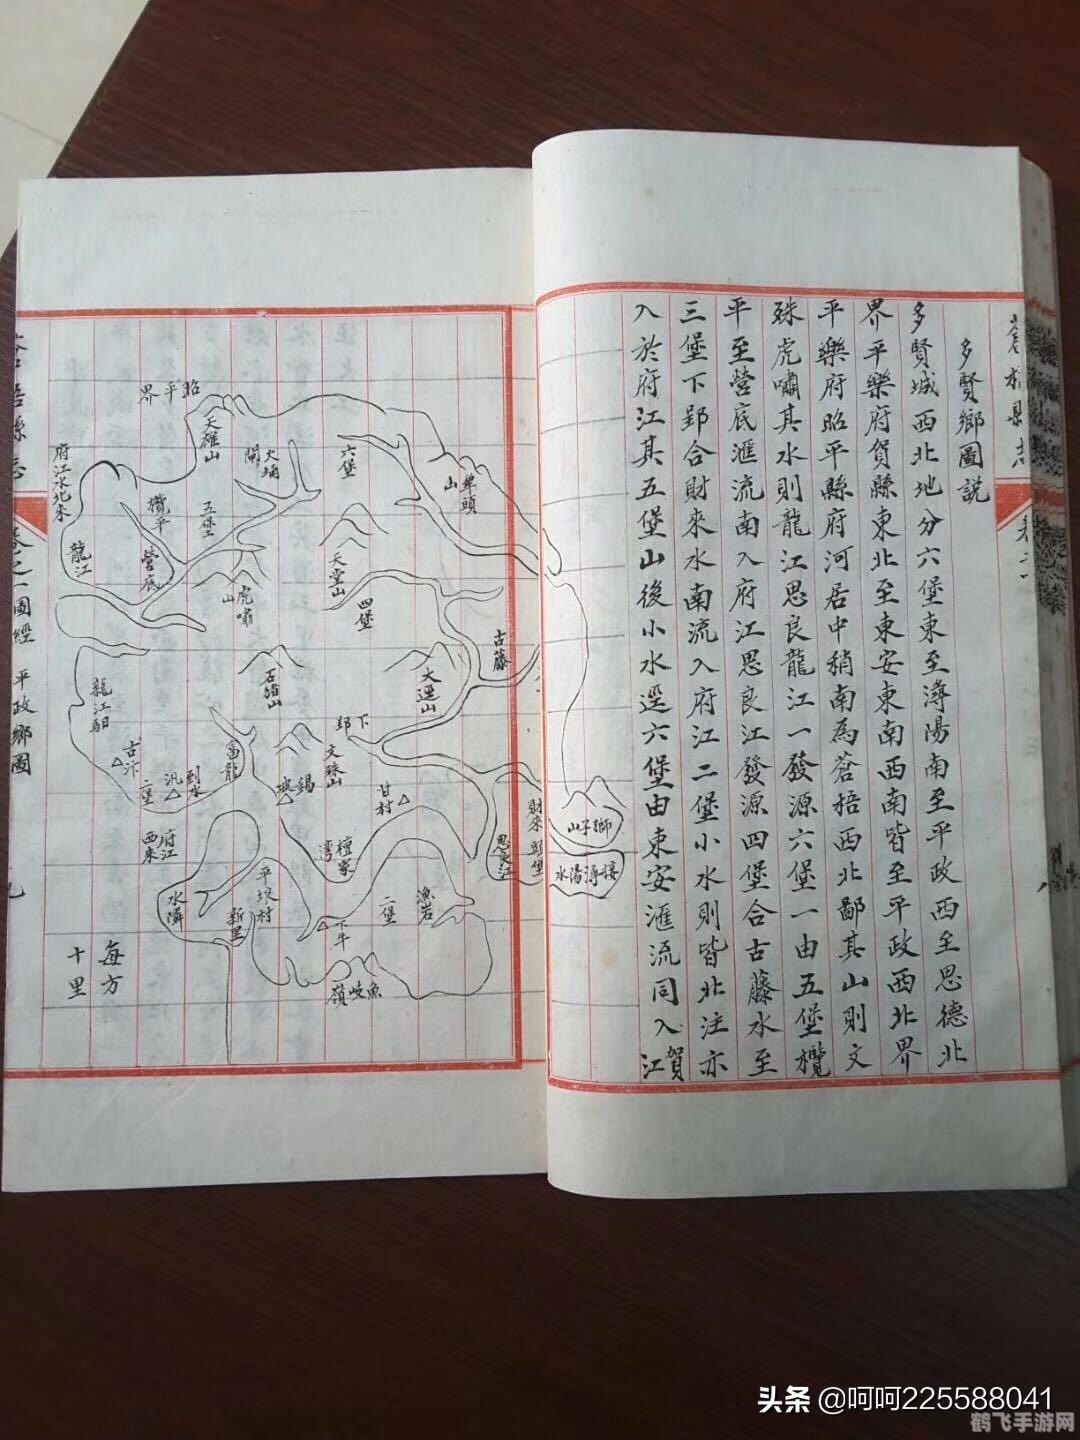 蒼梧縣志
多賢鄉圖說
多賢城西北地分六堡東至潯陽南至平政西至思德北
界平樂府賀縣東北至東安東南西南皆至平政西北界
平樂府昭平縣府河居中稍南為蒼捂西北鄙其山則文
殊虎嘯其水則龍江思良龍江一發源六堡一由五堡欖
平至營底滙流南入府江思良江發源四堡合古藤水至
三堡下郢合財來水南流入府江二堡小水則皆北注亦
入於府江其五堡山後小水逕六堡由東安滙流同入賀江
獅子山
接潯陽水
昭平界
天雄山
六堡
五堡
欖平
營底
龍江
府江水北來
虎嘯山
天堂山
四堡
古藤
石豬山
大運山
下郢
文殊山
龍江馹
古汴
富龍
二堡
府江西來
甘村
財來
思良江
檀家灣
漁岩
二堡
平埌村
新里
水隣
下牛
魚岐嶺
每方
十里
蒼梧縣志
圖經
平政鄉圖
九
头条 @呵呵225588041
鹤飞手游网